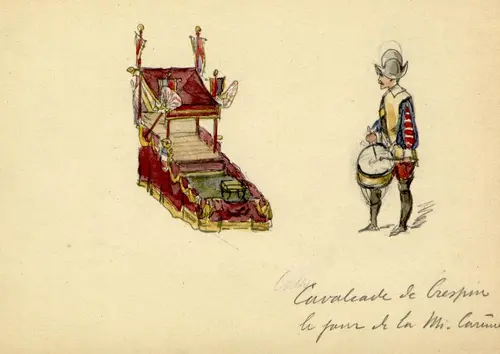 Cavalcade de Crespin
le jour de la Mi-Carême